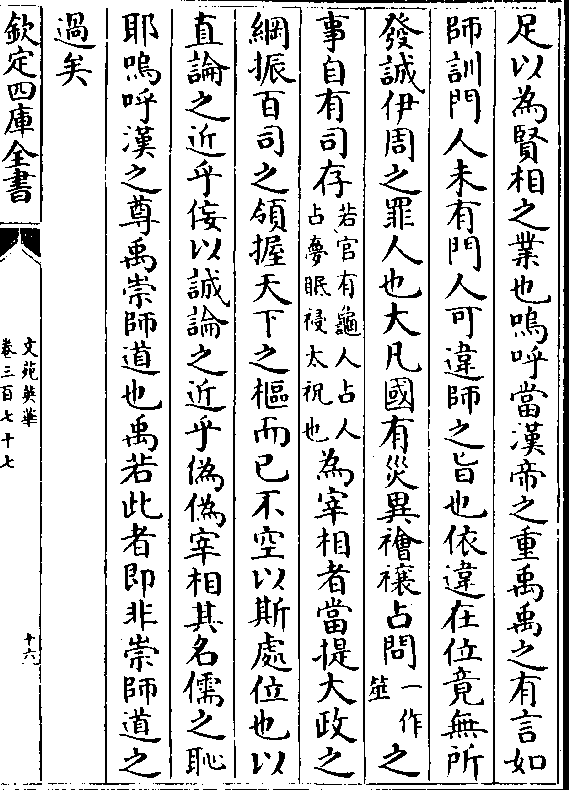 足以為賢相之業也嗚呼當漢帝之重禹禹之有言如
師訓門人未有門人可違師之旨也依違在位竟無所
發誠伊周之罪人也大凡國有災異禬禳占問一作筮之
事自有司存若官有龜人占人占夢眠祲太祝也為宰相者當提大政之
綱振百司之領握天下之樞而已不空以斯處位也以
直論之近乎佞以誠論之近乎偽偽宰相其名儒之恥
耶嗚呼漢之尊禹崇師道也禹若此者即非崇師道之
過矣
欽定四庫全書
文苑英華
卷三百七十七
十六